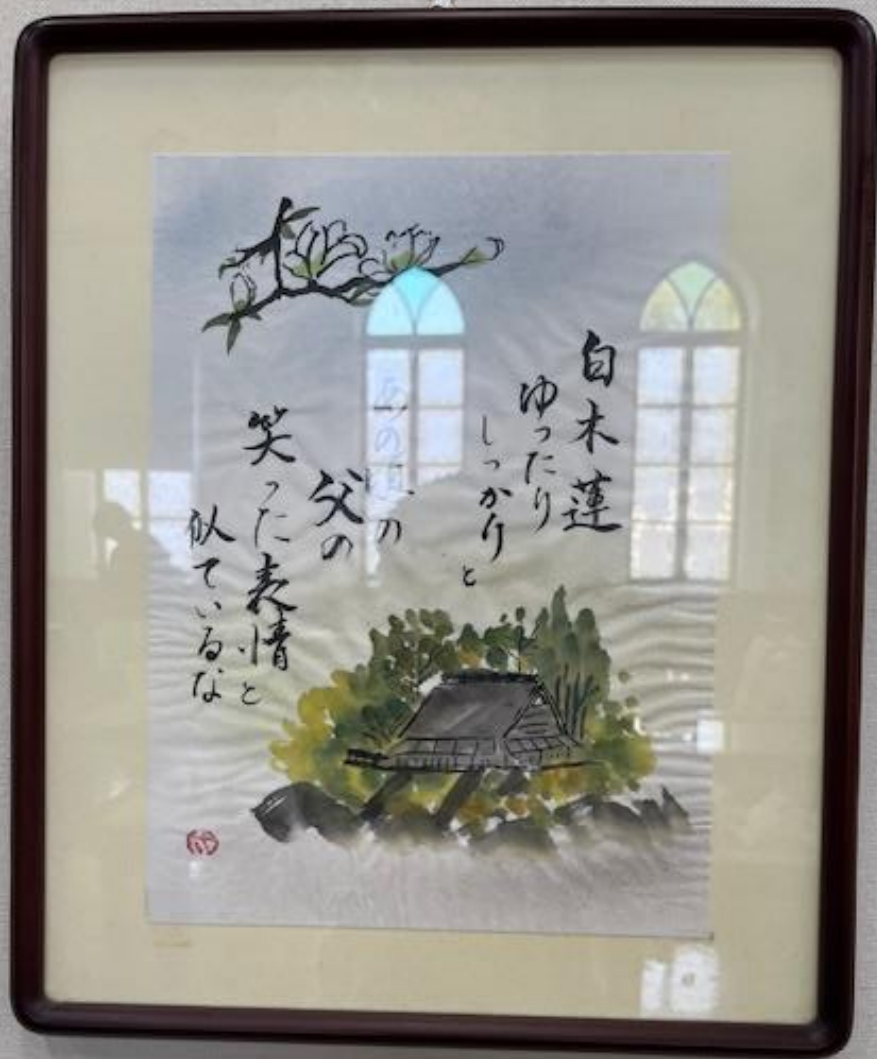 白木蓮
ゆったり
しっかりと
あの
の
父の
笑った表情と
似ているな